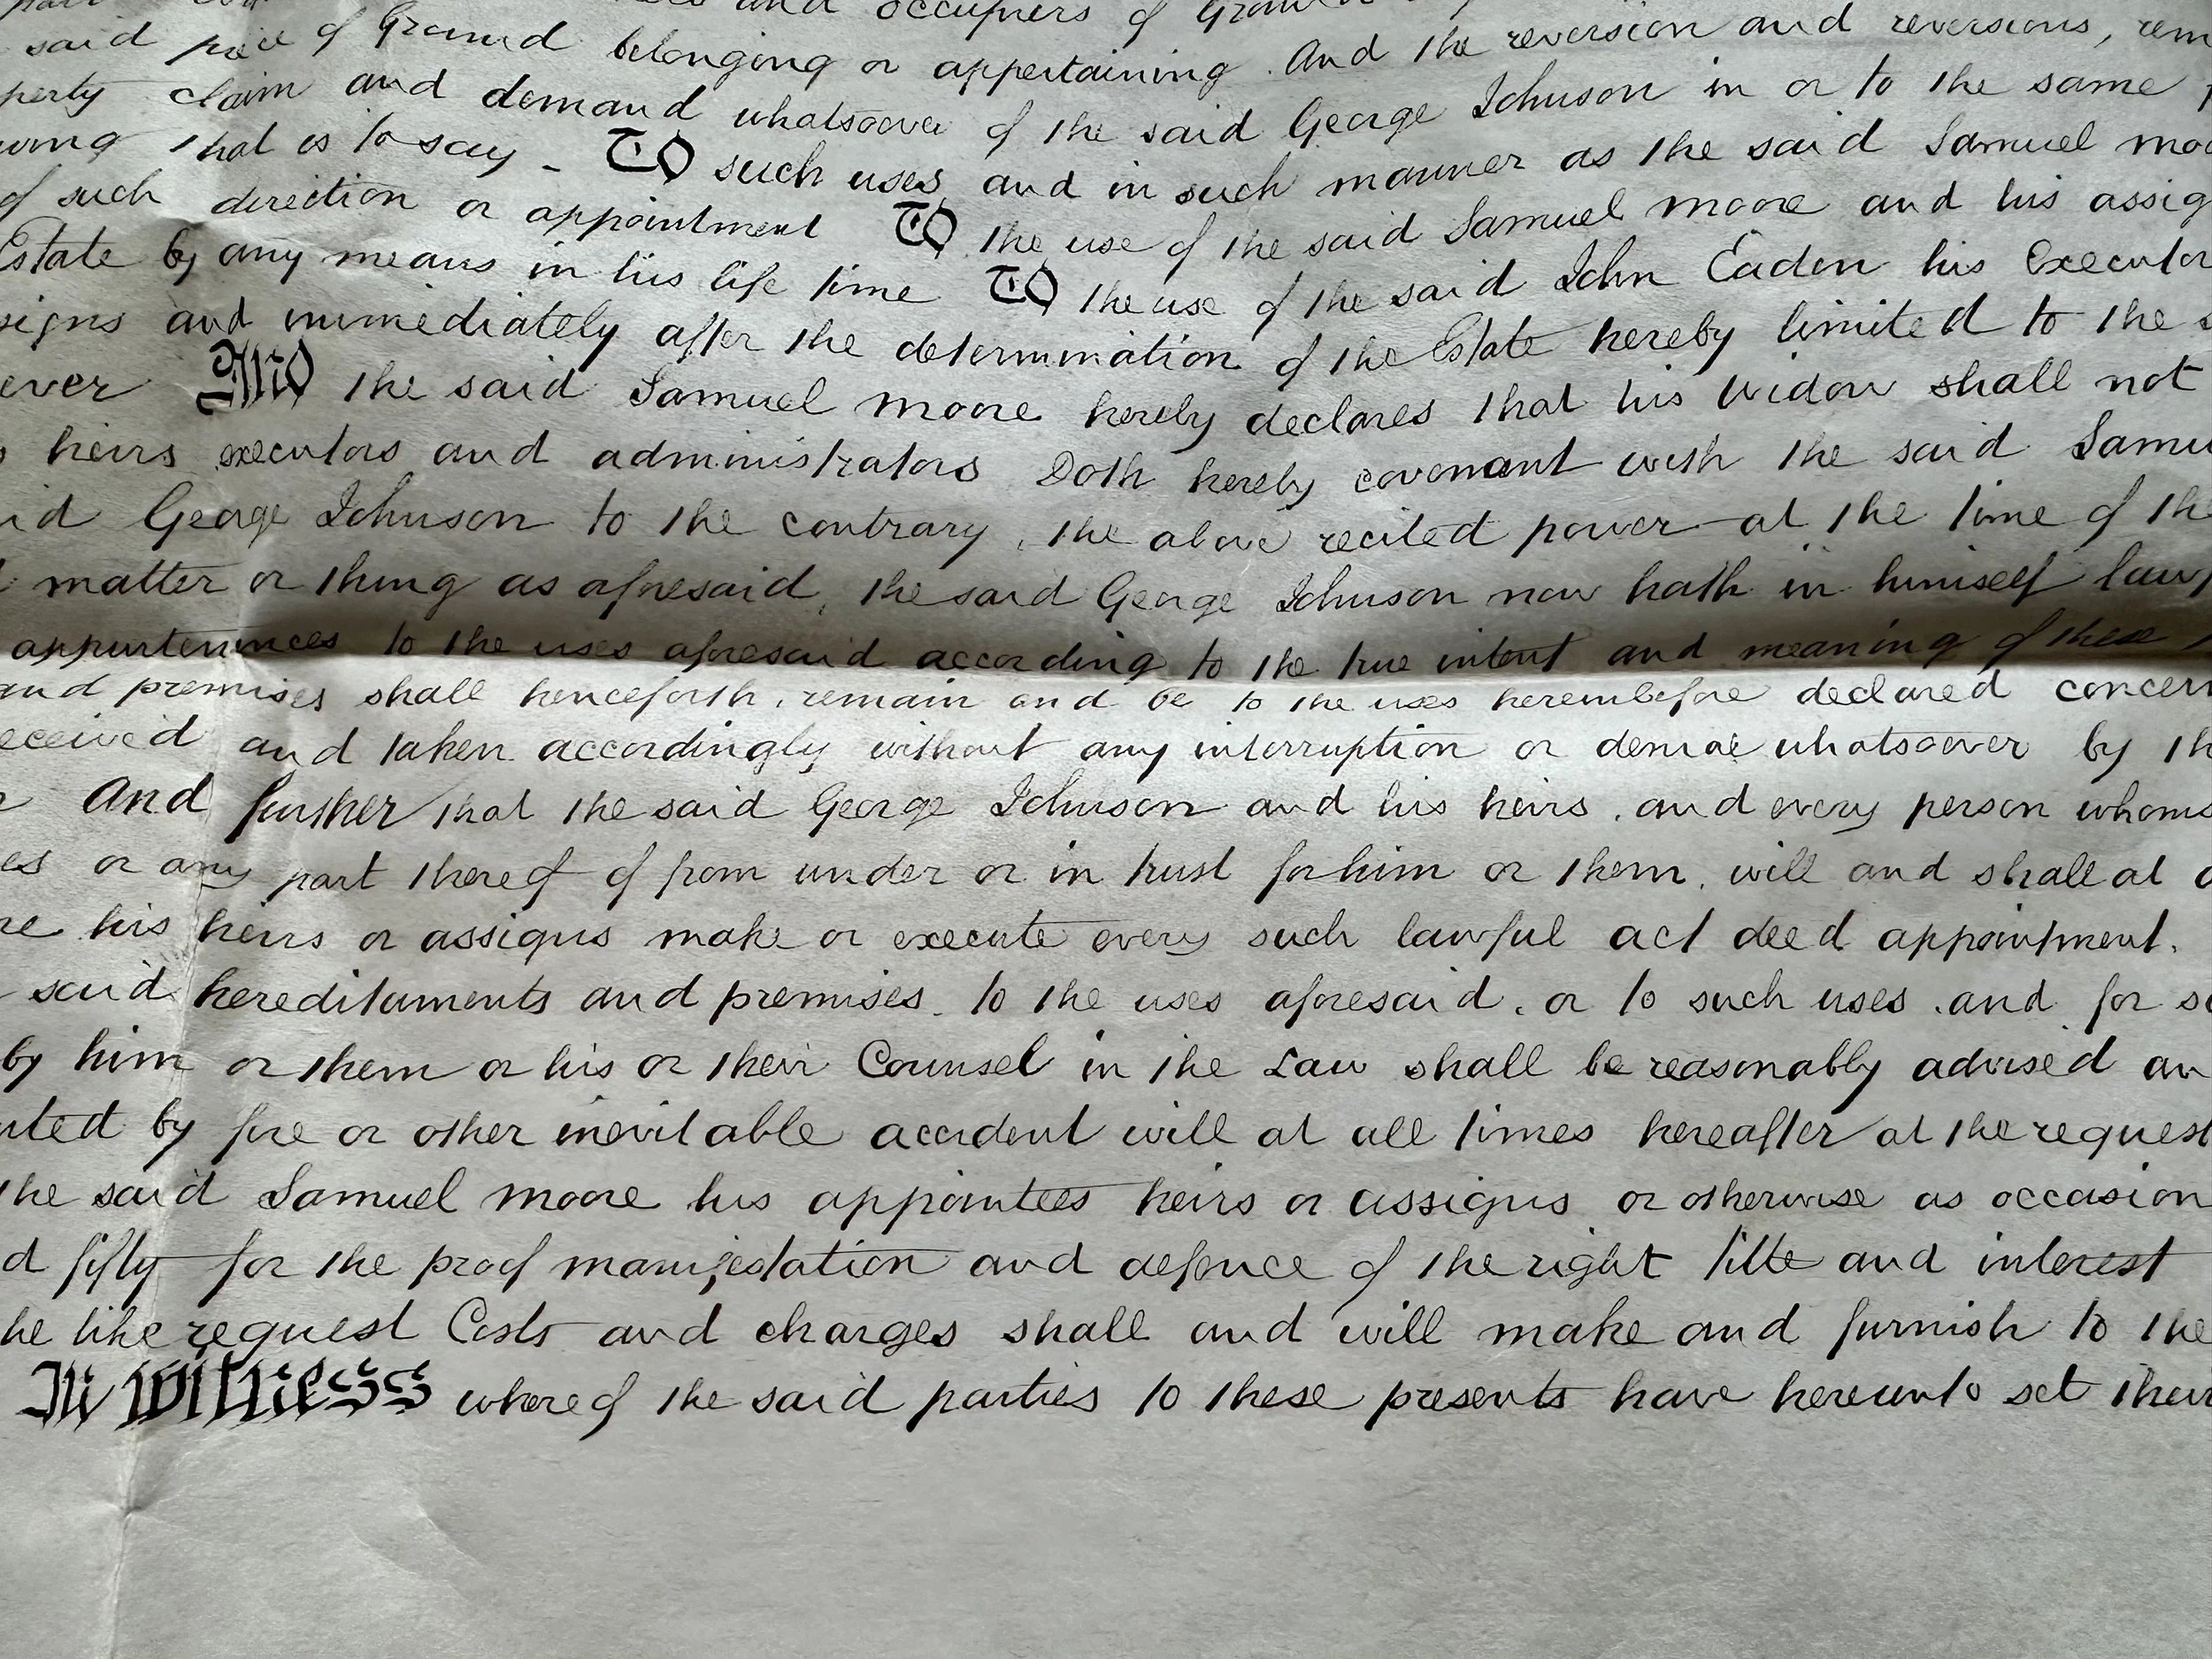 and occupiers of
said piece of Ground belonging or appertaining. And the reversion and reversions, rem
perty claim and demand whatsoever of the said George Johnson in or to the same
wing that is to say - To such uses, and in such manner as the said Samuel moo
of such direction or appointment To the use of the said Samuel moore and his assig
Estate by any means in his life time To the use of the said John Eaden his Executor
signs and immediately after the determination of the Estate hereby limited to the s
ever And the said Samuel moore hereby declares that his Widow shall not
s heirs executors and administrators Doth hereby covenant with the said Samu
id George Johnson to the contrary, the above recited power at the time of th
matter or thing as aforesaid, the said George Johnson now hath in himself law
appurtenances to the uses aforesaid according to the true intent and meaning of these
and premises shall henceforth, remain and be to the uses hereinbefore declared concern
eceived and taken accordingly without any interruption or denial whatsoever by th
And further that the said George Johnson and his heirs, and every person whoms
es or any part thereof of from under or in trust for him or them, will and shall at a
re his heirs or assigns make or execute every such lawful act deed appointment.
said hereditaments and premises. to the uses aforesaid, or to such uses, and for s
by him or them or his or their Counsel in the Law shall be reasonably advised an
nted by fire or other inevitable accident will at all times hereafter at the request
the said Samuel moore his appointees heirs or assigns or otherwise as occasion
d fifty for the proof manifestation and defence of the right title and interest
he like request Costs and charges shall and will make and furnish to the
In Witness whereof the said parties to these presents have hereunto set their